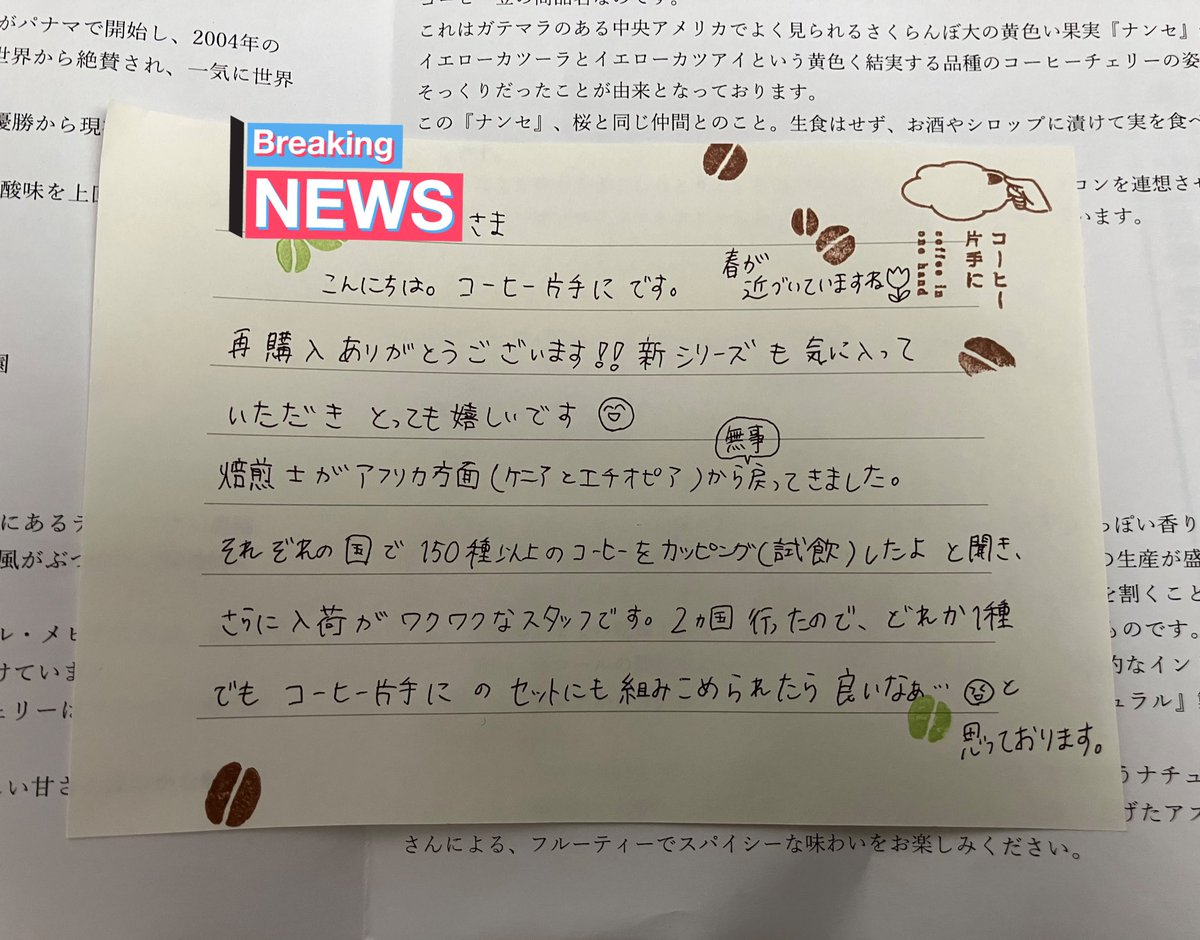 がパナマで開始し、2004年の
世界から絶賛され、一気に世界
優勝から現
酸味を上回
園
にあるラ
風がぶつ
ル・メヒ
けていま
ェリーは
しい甘さ
コーヒー豆の商品名なのです。
これはガテマラのある中央アメリカでよく見られるさくらんぼ大の黄色い果実『ナンセ』
イエローカツーラとイエローカツアイという黄色く結実する品種のコーヒーチェリーの姿
そっくりだったことが由来となっております。
この『ナンセ』、桜と同じ仲間とのこと。生食はせず、お酒やシロップに漬けて実を食べ
コンを連想させ
います。
Breaking
NEWS
さま
コーヒー
片手に
coffee in
one hand
こんにちは。コーヒー片手にです。
春が
近づいていますね
再購入ありがとうございます!!新シリーズも気に入って
いただきとっても嬉しいです
焙煎士がアフリカ方面(ケニアとエチオピア)から無事戻ってきました。
それぞれの国で150種以上のコーヒーをカッピング(試飲)したよと聞き、
さらに入荷がワクワクなスタッフです。2ヵ国行ったので、どれか1種
でもコーヒー片手にのセットにも組みこめられたら良いなぁ…と
思っております。
っぽい香り
の生産が盛
を割くこと
ものです。
的なイン
ュラル』
うナチュ
げたアス
さんによる、フルーティーでスパイシーな味わいをお楽しみください。